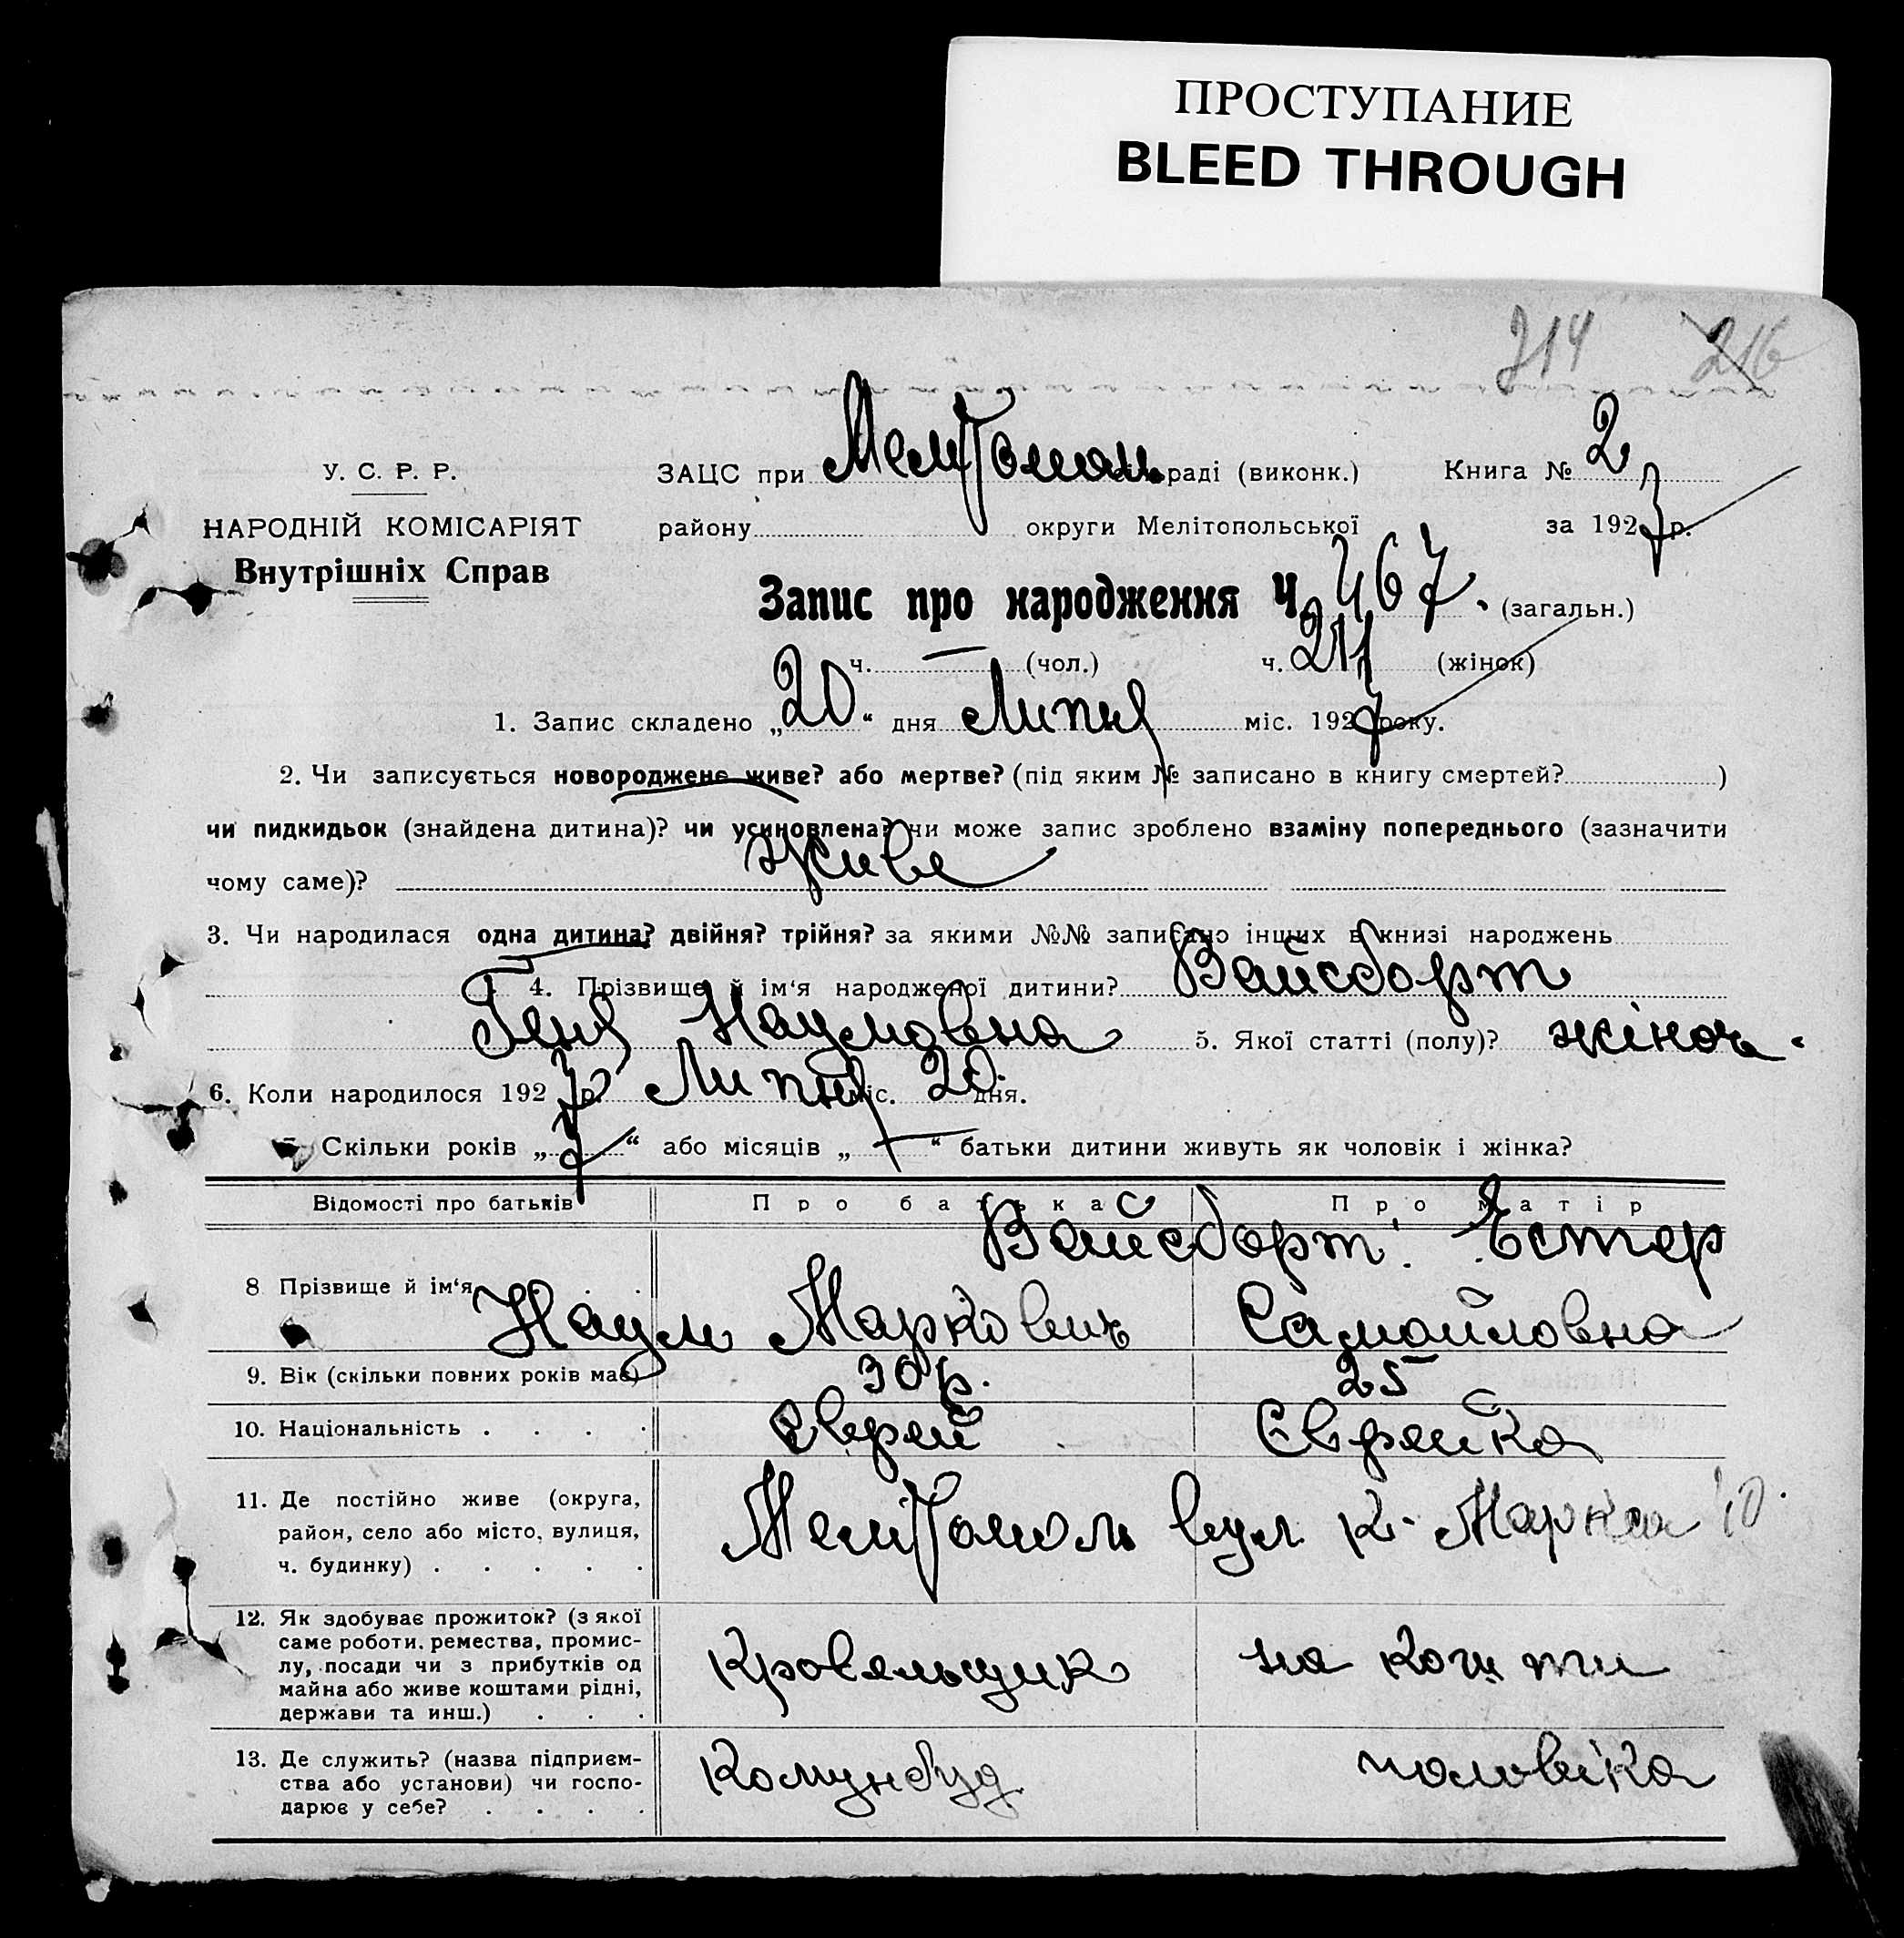 ПРОСТУПАНИЕ
BLEED THROUGH
714 216
У. С. Р. Р. ЗАЦС при Мелітопол раді (виконк.) Книга № 2
НАРОДНІЙ КОМІСАРІЯТ району округи Мелітопольської за 1927 р.
Внутрішніх Справ
Запис про народження Ч. 467. (загальн.)
ч. — (чол.) ч. 217 (жінок)
1. Запис складено „20“ дня Липня міс. 1927 року.
2. Чи записується новороджене живе? або мертве? (під яким № записано в книгу смертей? )
чи пидкидьок (знайдена дитина)? чи усиновлена? чи може запис зроблено взаміну попереднього (зазначити
чому саме)? живе
3. Чи народилася одна дитина? двійня? трійня? за якими №№ записано інших в книзі народжень
4. Прізвище й ім‘я народженої дитини? Вайсборт
Геня Наумовна 5. Якої статті (полу)? жіноч.
6. Коли народилося 1927 р. Липня міс. 20 дня.
7 Скільки років „7“ або місяців „—“ батьки дитини живуть як чоловік і жінка?
Відомості про батьків Про батька Про матір
Вайсборт Естер
8 Прізвище й ім‘я
Наум Маркович Самойловна
9. Вік (скільки повних років має) 30 р. 25
10. Національність . . . . Єврей Єврейка
11. Де постійно живе (округа,
район, село або місто, вулиця, Мелітополь вул. К. Маркса 10.
ч. будинку) . . . . .
12. Як здобуває прожиток? (з якої
саме роботи, ремества, промис-
лу, посади чи з прибутків од Кровельщик на кошти
майна або живе коштами рідні,
держави та инш.) . . .
13. Де служить? (назва підприєм- Комунбуд чоловіка
ства або установи) чи госпо-
дарює у себе? . . . .